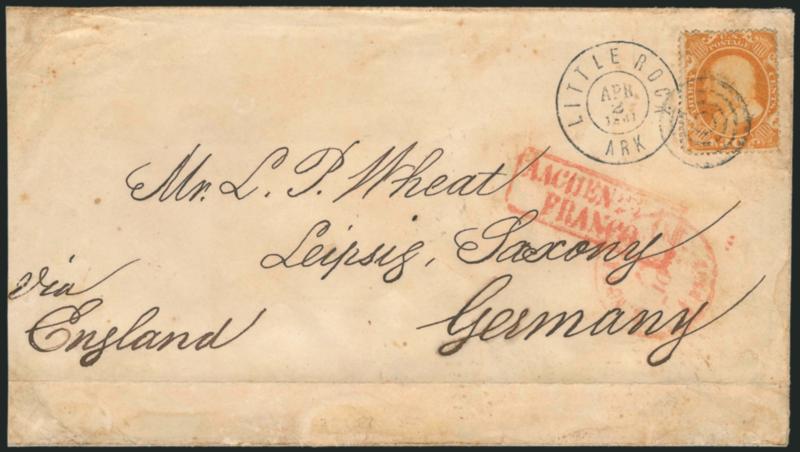 LITTLE ROCK
APR.
2
1861
ARK
U.S. POSTAGE
THIRTY
CENTS
Mr. L. P. Wheat
AACHEN
FRANCO
Leipsig, Saxony
via
England
Germany